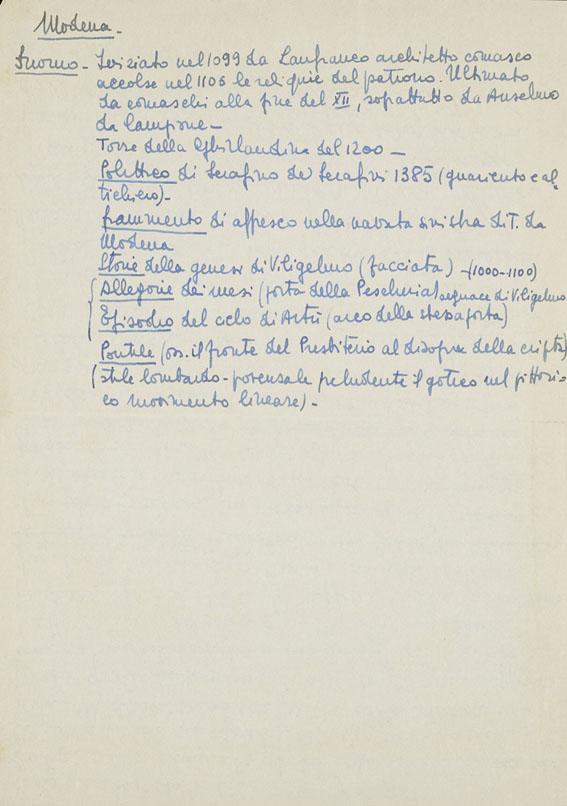 Modena -
Duomo - Iniziato nel 1099 da Lanfranco architetto comasco
accolse nel 1106 le reliquie del patrono. Ultimato
da comaschi alla fine del XII, soprattutto da Anselmo
da Campione -
Torre della Ghirlandina del 1200 -
Polittico di Serafino de' Serafini 1385 (guariento e al=
tichiero) -
frammento di affresco nella navata sinistra di T. da
Modena
Storie della genesi di Viligelmo (facciata) - (1000-1100)
Allegorie dei mesi (porta della Pescheria) seguace di Viligelmo
Episodio del ciclo di Artù (arco della stessa porta)
Pontile (oss. il fronte del Presbiterio al disopra della cripta)
(stile lombardo-provenzale preludente il gotico nel pittori=
co movimento lineare) -